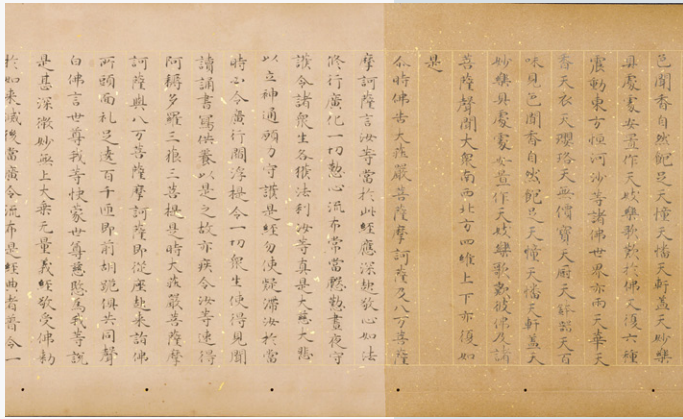 色聞香自然飽足天幢天幡天軒蓋天妙樂
具處處安置作天妓樂歌歎於佛又復六種
震動東方恒河沙等諸佛世界亦雨天華天
香天衣天瓔珞天無價寶天廚天鉢器天百
味見色聞香自然飽足天幢天幡天軒蓋天
妙樂具處處安置作天妓樂歌歎彼佛及諸
菩薩聲聞大衆南西北方四維上下亦復如
是
尒時佛告大莊嚴菩薩摩訶薩及八万菩薩
摩訶薩言汝等當於此經應深起敬心如法
修行廣化一切懃心流布常當慇懃晝夜守
護令諸衆生各獲法利汝等真是大慈大悲
以立神通願力守護是經勿使疑滯汝於當
時必令廣行閻浮提令一切衆生使得見聞
讀誦書寫供養以是之故亦疾令汝等速得
阿耨多羅三藐三菩提是時大莊嚴菩薩摩
訶薩與八万菩薩摩訶薩即從座起來詣佛
所頭面礼足遶百千匝即前胡跪俱共同聲
白佛言世尊我等快蒙世尊慈愍為我等說
是甚深微妙無上大乘无量義經敬受佛勑
於如來滅後當廣令流布是經典者普令一